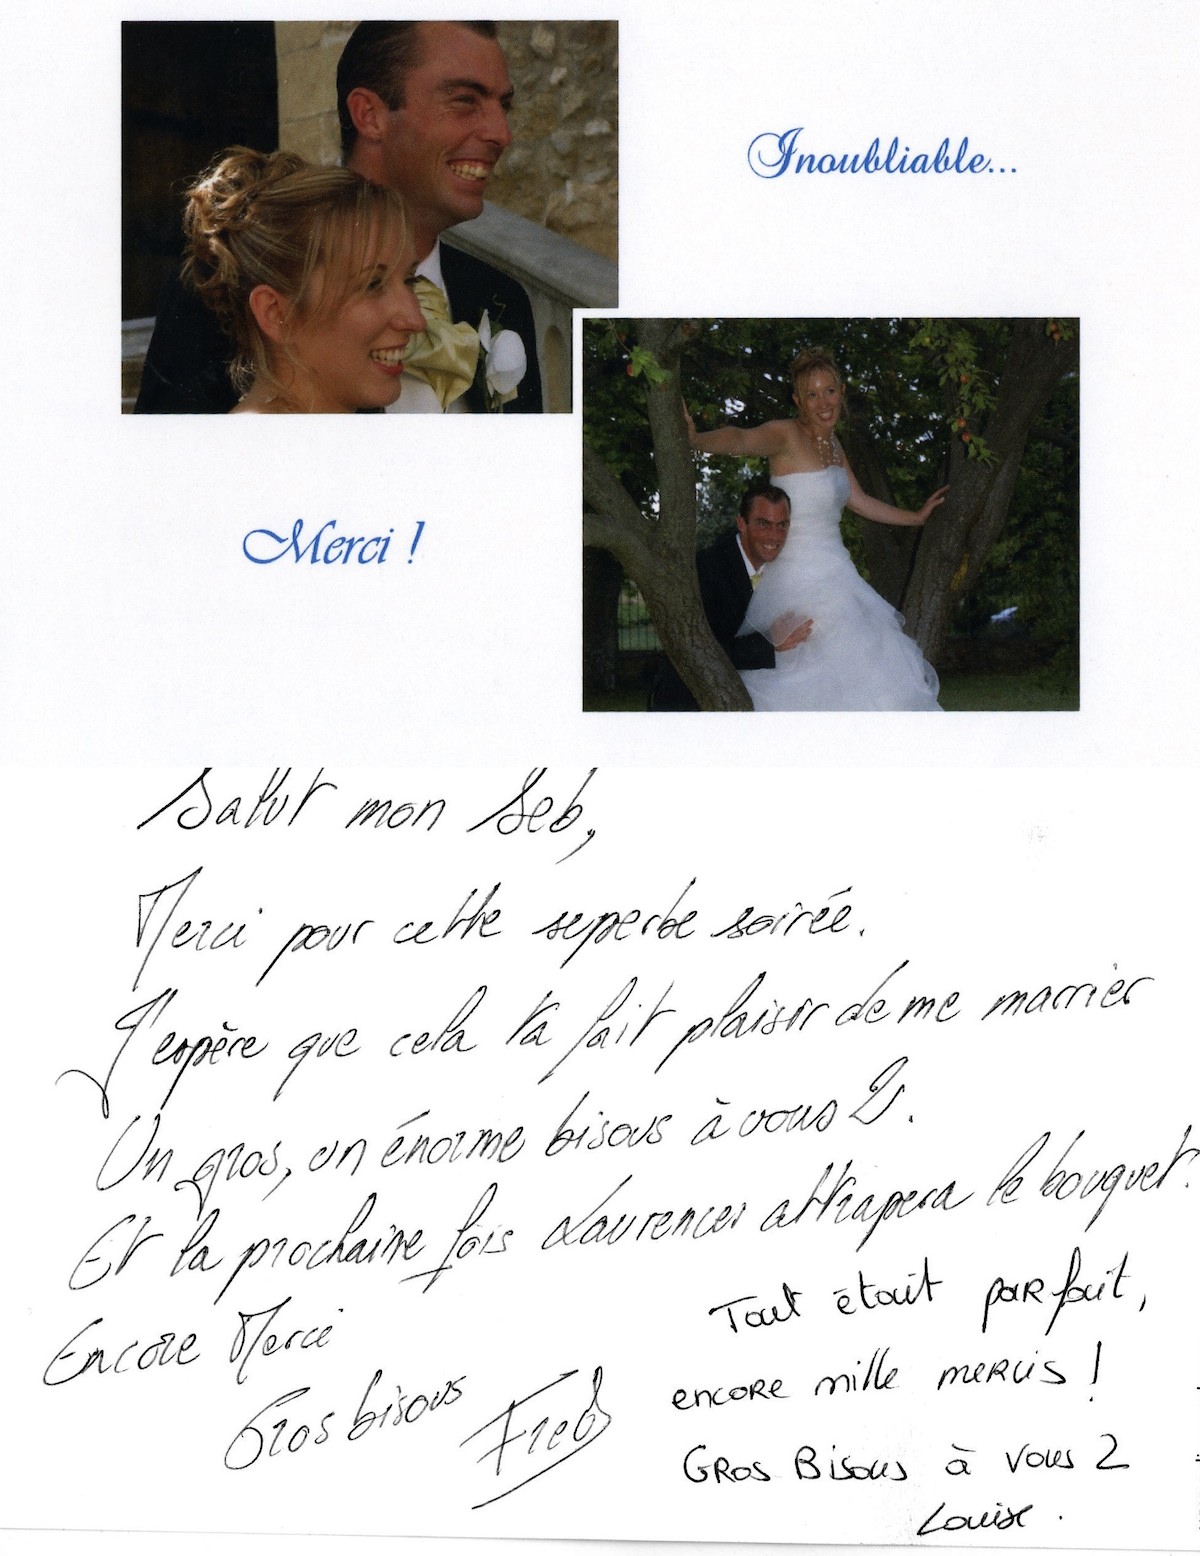 Inoubliable...
Merci !
Salut mon Seb,
Merci pour cette superbe soirée.
J'espère que cela t'a fait plaisir de me marrier
Un gros, un énorme bisous à vous 2.
Et la prochaine fois Laurence attrapera le bouquet.
Encore Merci
Gros bisous Fred
Tout était parfait,
encore mille mercis !
Gros Bisous à vous 2
Louise.